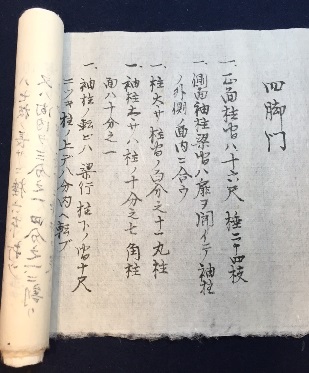 四脚門
一、正面柱間ハ十六尺 棰二十四枝
一、側面袖柱梁間ハ扉ヲ開イテ袖柱
ノ外側面内ニ合ウ
一、柱太サ柱間ノ百分之十一丸柱
一、袖柱太サハ柱ノ十分之七角柱
面ハ十分之一
一、袖柱ノ転ビハ梁行柱下ノ間十尺
ニツキ柱ノ上デ八分内ヘ転ブ